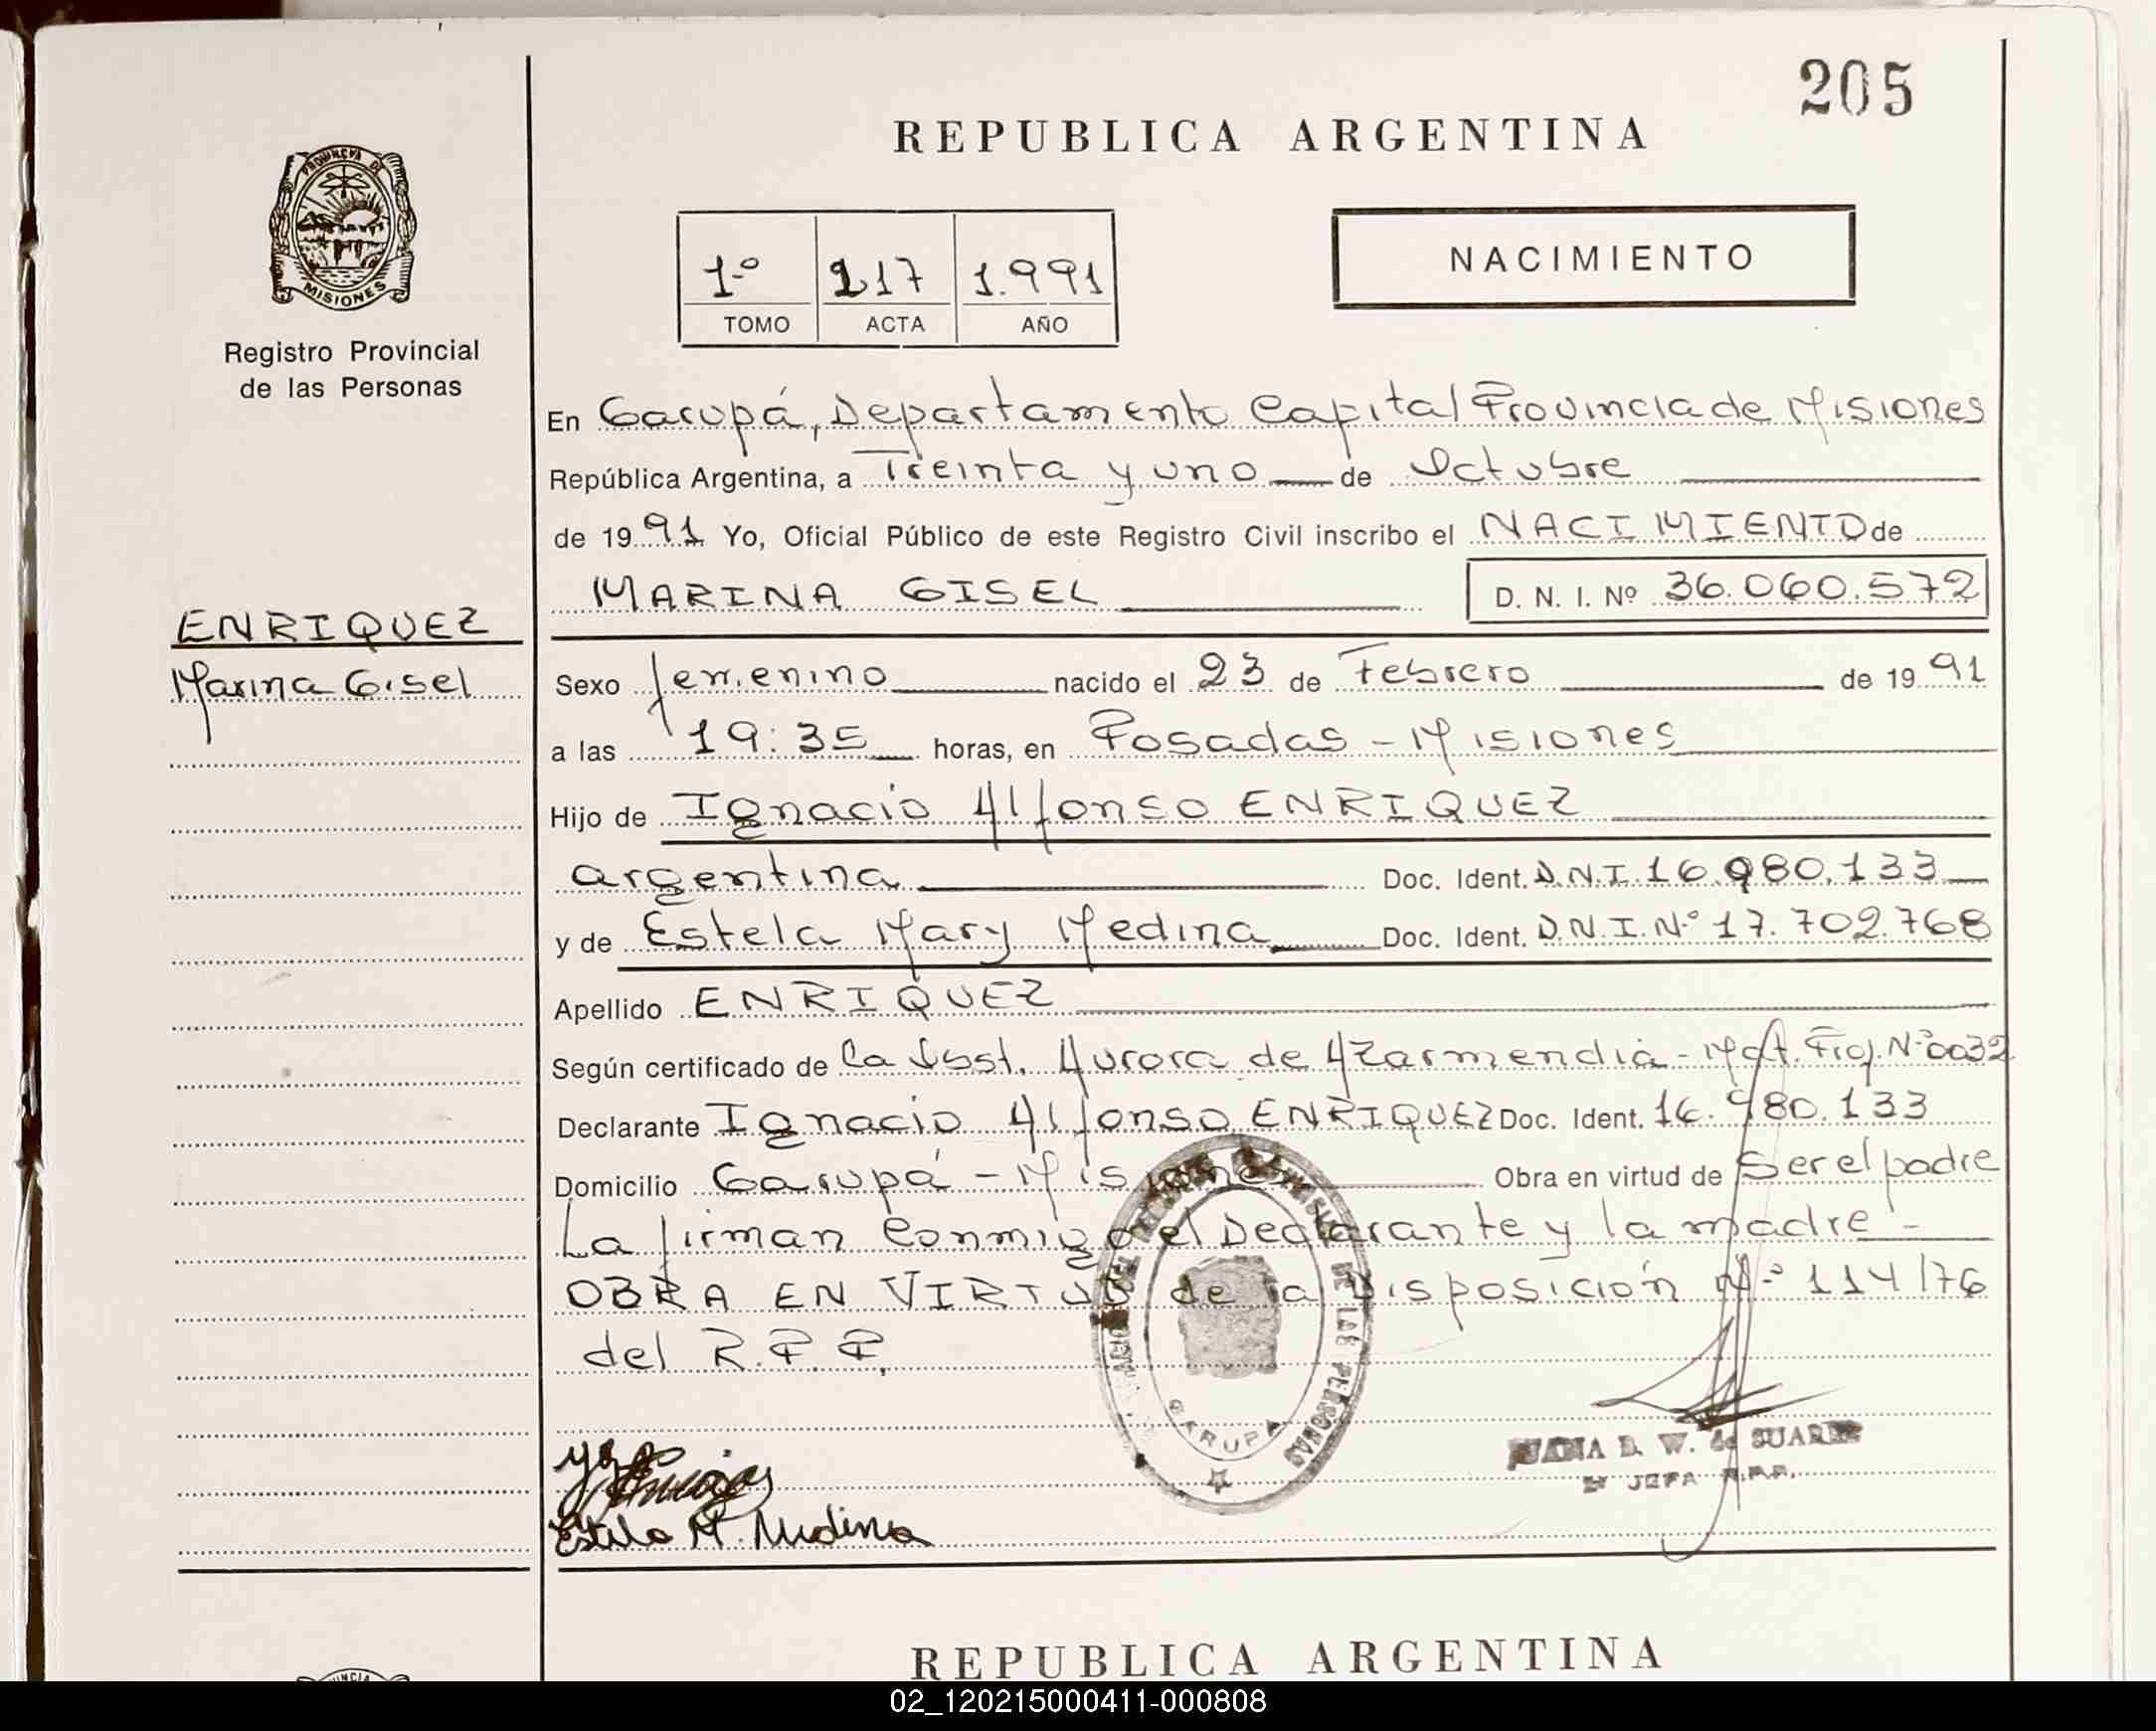 205
REPUBLICA ARGENTINA
PROVINCIA DE
MISIONES
Registro Provincial
de las Personas
1º 217 1.991
TOMO ACTA AÑO
NACIMIENTO
En Garupá, Departamento Capital Provincia de Misiones
República Argentina, a Treinta y uno de Octubre
de 1991 Yo, Oficial Público de este Registro Civil inscribo el NACIMIENTO de
MARINA GISEL D. N. I. Nº 36.060.572
ENRIQUEZ
Marina Gisel
Sexo femenino nacido el 23 de Febrero de 1991
a las 19:35 horas, en Posadas - Misiones
Hijo de Ignacio Alfonso ENRIQUEZ
argentina Doc. Ident. D.N.I. 16.980.133
y de Estela Mary Medina Doc. Ident. D.N.I. Nº 17.702.768
Apellido ENRIQUEZ
Según certificado de la Obst. Aurora de Azarmendia - Mat. Prof. Nº 0032
Declarante Ignacio Alfonso ENRIQUEZ Doc. Ident. 16.980.133
Domicilio Garupá - Misiones Obra en virtud de Ser el padre
La firman Conmigo el Declarante y la madre.-
OBRA EN VIRTUD de la Disposición Nº 114/76
del R.P.P.
DE LAS PERSONAS
GARUPA
B. W. de SUAREZ
JEFA R.P.P.
Estela M. Medina
REPUBLICA ARGENTINA
02_120215000411-000808